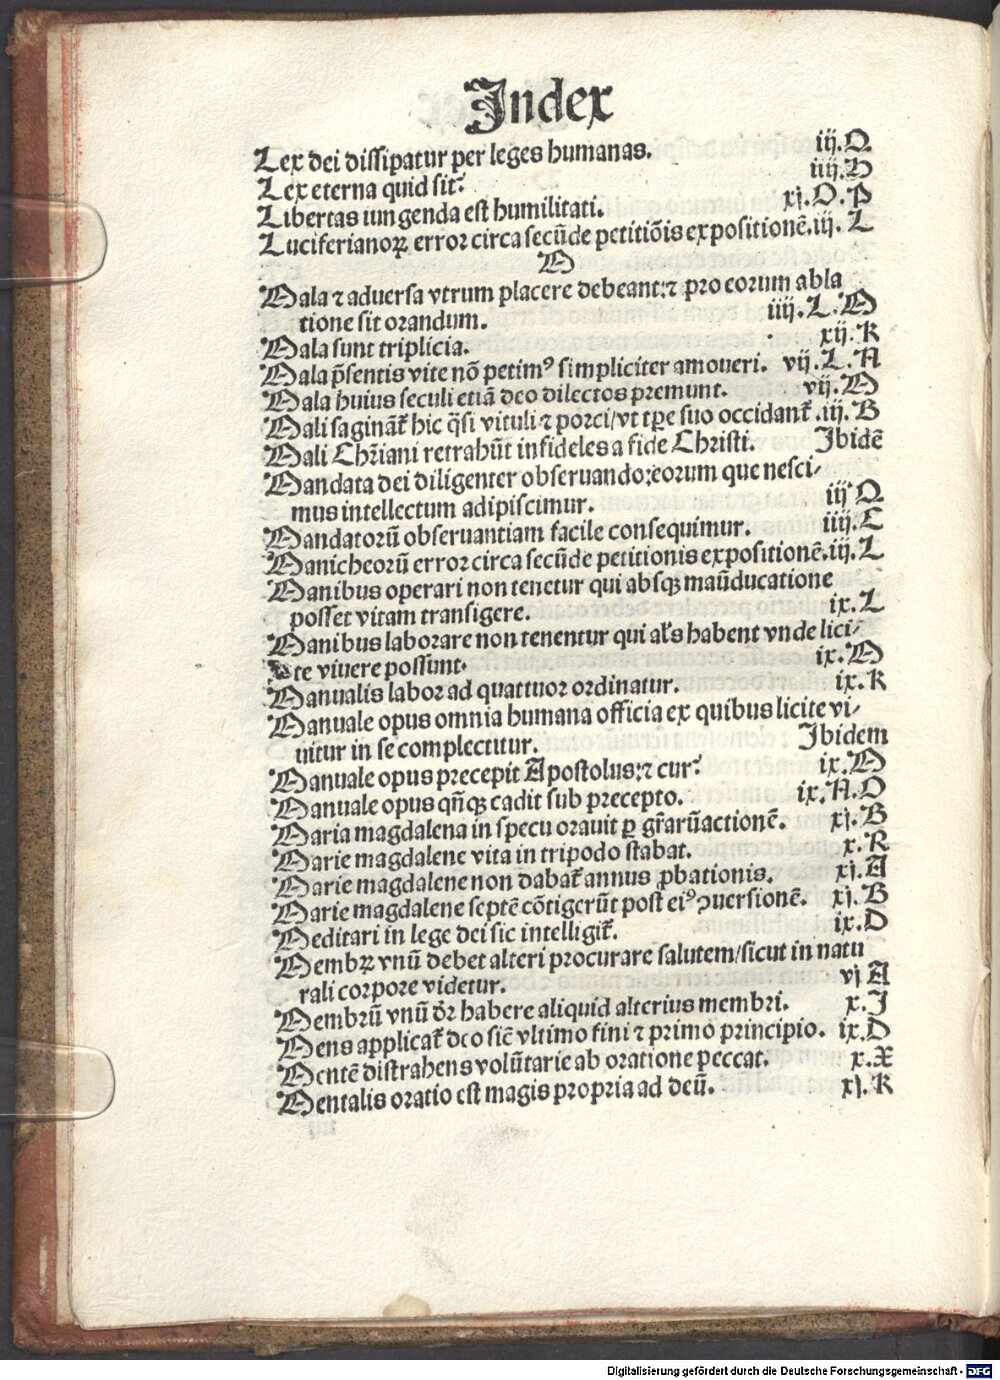 Index
Lex dei dissipatur per leges humanas. iij.Q
Lex eterna quid sit? iiij.D
Libertas iungenda est humilitati. xj.O.P
Luciferianoꝝ error circa secūde petitiōis expositionē. iij.L
M
Mala ⁊ aduersa vtrum placere debeant:⁊ pro eorum abla
tione sit orandum. iiij.L.M
Mala sunt triplicia. xij.K
Mala p̄sentis vite nō petimꝰ simpliciter amoueri. vij.L.N
Mala huius seculi etiā deo dilectos premunt. vij.M
Mali saginant̄ hic q̄si vituli ⁊ porci/vt tꝑe suo occidant̄. iij.B
Mali Chr̄iani retrahūt infideles a fide Christi. Ibidē
Mandata dei diligenter obseruando:eorum que nesci/
mus intellectum adipiscimur. iij Q
Mandatorū obseruantiam facile consequimur. iiij.C
Manicheorū error circa secūde petitionis expositionē. iij.L
Manibus operari non tenetur qui absqꝫ māducatione
posset vitam transigere. ix.L
Manibus laborare non tenentur qui al̄s habent vnde lici/
te viuere possunt. ix.M
Manualis labor ad quattuor ordinatur. ix.K
Manuale opus omnia humana officia ex quibus licite vi/
uitur in se complectitur. Ibidem
Manuale opus precepit Apostolus:⁊ cur? ix.M
Manuale opus qn̄qꝫ cadit sub precepto. ix.N.O
Maria magdalena in specu orauit ꝑ gr̄arūactionē. xj.B
Marie magdalene vita in tripodo stabat. x.R
Marie magdalene non dabat̄ annus ꝓbationis. xj.A
Marie magdalene septē cōtigerūt post eiꝰ ꝯuersionē. xj.B
Meditari in lege dei sic intelligit̄. ix.D
Membꝝ vnū debet alteri procurare salutem/sicut in natu
rali corpore videtur. vj A
Membrū vnū dr̄ habere aliquid alterius membri. x.J
Mens applicat̄ deo sicē vltimo fini ⁊ primo principio. ix.D
Mentē distrahens volūtarie ab oratione peccat. x.X
Mentalis oratio est magis propria ad deū. xj.K
Digitalisierung gefördert durch die Deutsche Forschungsgemeinschaft - DFG